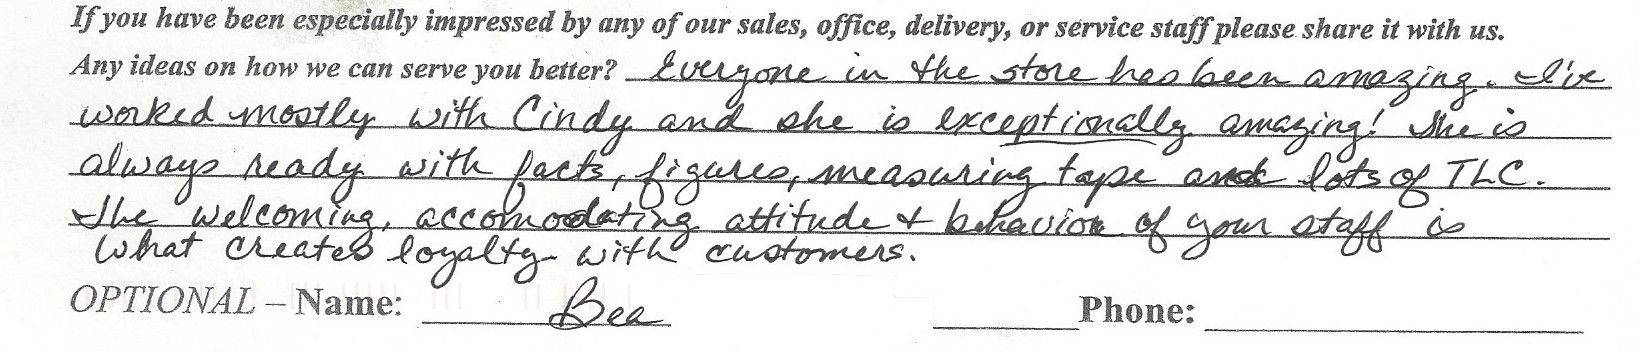 If you have been especially impressed by any of our sales, office, delivery, or service staff please share it with us.
Any ideas on how we can serve you better? Everyone in the store has been amazing. I've
worked mostly with Cindy and she is exceptionally amazing! She is
always ready with facts, figures, measuring tape and lots of TLC.
The welcoming, accomodating attitude & behavior of your staff is
what creates loyalty with customers.
OPTIONAL – Name: Bea Phone: